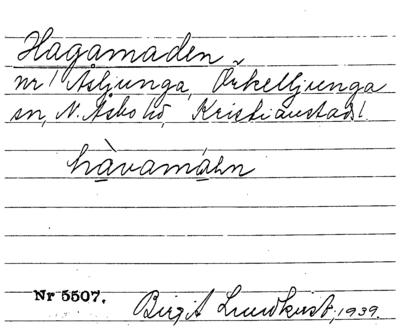 Hagåmaden
nr 1 Asljunga, Örkelljunga
sn, N. Åsbo hd, Kristianstads l.
hàvamáhn
Nr 5507. Birgit Lundkvist, 1939.